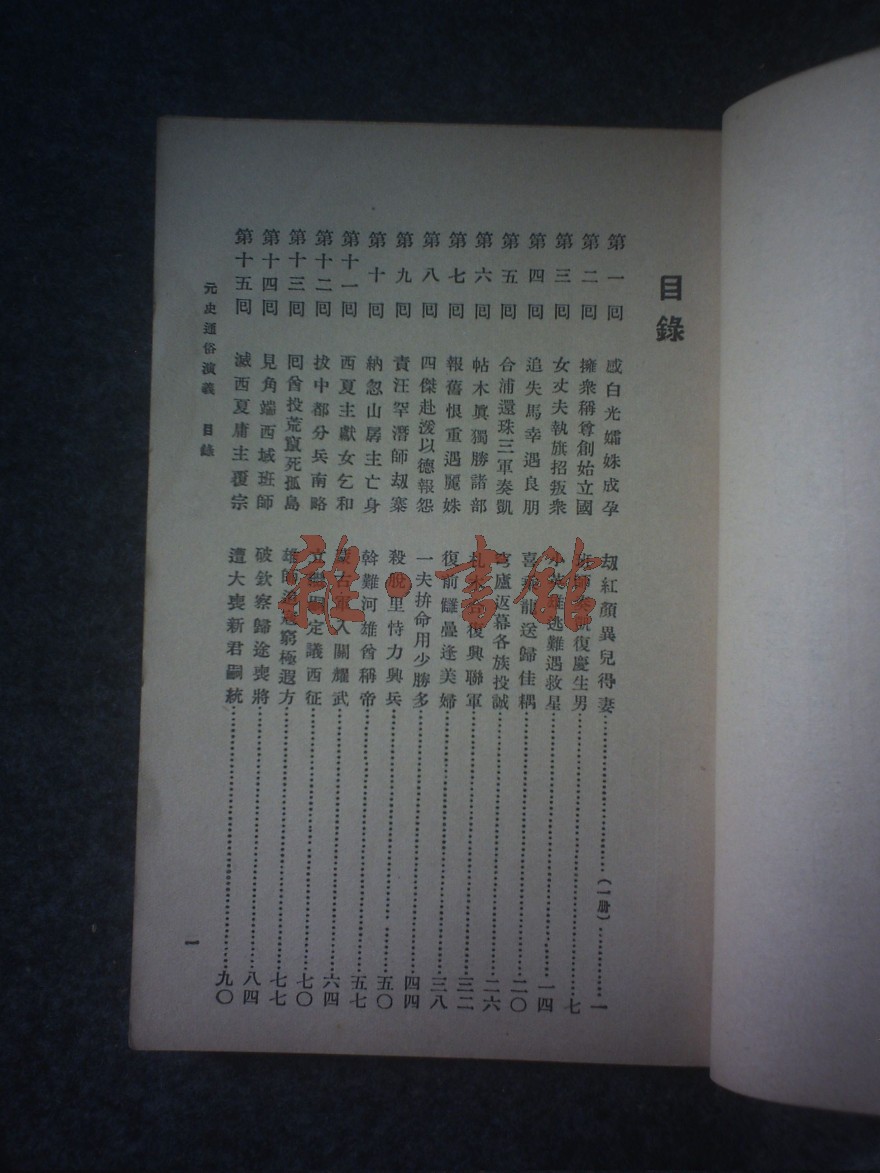 目錄
第一囘 感白光孀姝成孕 劫紅顏異兒得妻……(一册)……一
第二囘 擁衆稱尊創始立國 班師奏凱復慶生男……七
第三囘 女丈夫執旗招叛衆 小英雄逃難遇救星……一四
第四囘 追失馬幸遇良朋 喜乘龍送歸佳耦……二〇
第五囘 合浦還珠三軍奏凱 穹廬返幕各族投誠……二六
第六囘 帖木眞獨勝諸部 札木合復興聯軍……三二
第七囘 報舊恨重遇麗姝 復前讎疊逢美婦……三八
第八囘 四傑赴援以德報怨 一夫拚命用少勝多……四四
第九囘 責汪罕潛師劫寨 殺脫里恃力興兵……五〇
第十囘 納忽山孱主亡身 斡難河雄酋稱帝……五七
第十一囘 西夏主獻女乞和 蒙古軍入關耀武……六四
第十二囘 拔中都分兵南略 立繼嗣定議西征……七〇
第十三囘 囘酋投荒竄死孤島 雄師追寇窮極遐方……七七
第十四囘 見角端西域班師 破欽察歸途喪將……八四
第十五囘 滅西夏庸主覆宗 遭大喪新君嗣統……九〇
元史通俗演義 目錄
一
雜·書館